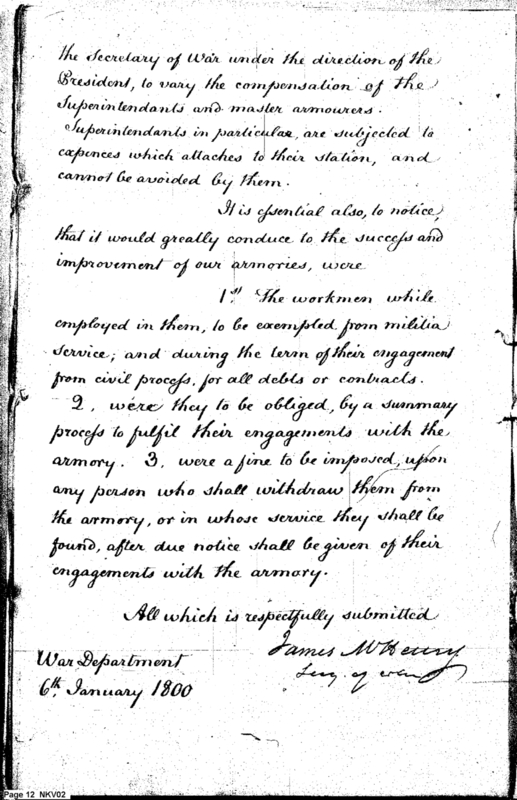 the Secretary of War under the direction of the
President, to vary the compensation of the
Superintendants and master armourers.
Superintendants in particular, are subjected to
expences which attaches to their station, and
cannot be avoided by them.
It is essential also, to notice,
that it would greatly conduce to the success and
improvement of our armories, were
1st. The workmen while
employed in them, to be exempted from militia
service; and during the term of their engagement
from civil process, for all debts or contracts.
2, were they to be obliged, by a summary
process to fulfil their engagements with the
armory. 3, were a fine to be imposed, upon
any person who shall withdraw them from
the armory, or in whose service they shall be
found, after due notice shall be given of their
engagements with the armory.
All which is respectfully submitted
James McHenry
Secy. of war
War Department
6th. January 1800
Page 12 NKV02